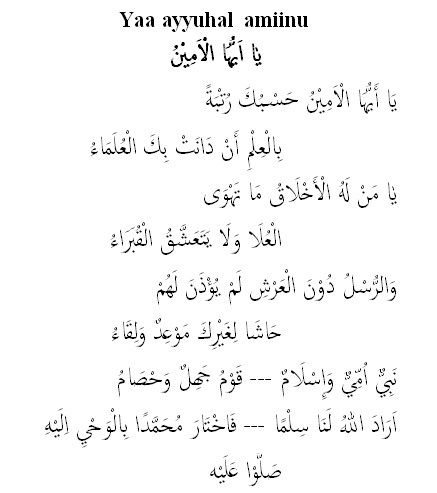 Yaa ayyuhal amiinu
يٰا اَيُّهَا الْاَمِيْنُ
يَا أَيُّهَا الْاَمِيْنُ حَسْبُكَ رُتْبَةً
بِالْعِلْمِ أَنْ دَانَتْ بِكَ الْعُلَمَاءُ
يٰا مَنْ لَهُ الْأَخْلَاقُ مَا تَهْوَى
الْعُلَا وَلَا يَتَعَشَّقُ الْقُبَرَاءُ
وَالرُّسْلُ دُوْنَ الْعَرْشِ لَمْ يُؤْذَنَ لَهُمْ
حَاشَا لِغَيْرِكَ مَوْعِدٌ وَلِقَاءُ
نَبِيٌّ اُمِّيٌّ وَإِسْلَامٌ --- قَوْمُ جَهِلٌ وَحْصَامُ
اَرَادَ اللهُ لَنَا سِلْمًا --- فَاخْتَارَ مُحَمَّدًا بِالْوَحْيِ اِلَيْهِ
صَلُّوْا عَلَيْه